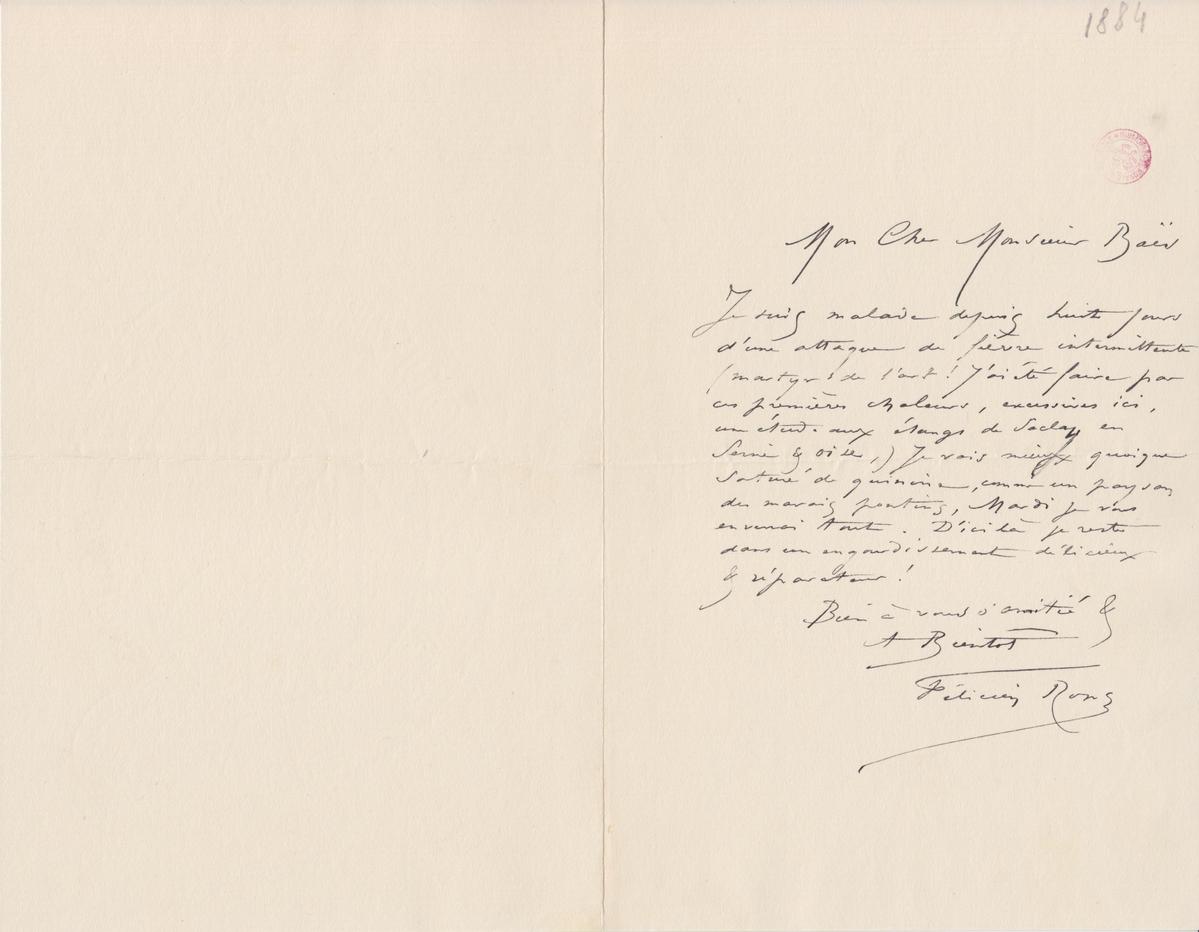 1884
Mon Cher Monsieur Baës
Je suis malade depuis huit jours
d'une attaque de fièvre intermittente
(martyrs de l'art ! J'ai été faire par
ces premières chaleurs, excessives ici,
une étude aux étangs de Saclay en
Seine & oise,) Je vais mieux quoique
saturé de quinine, comme un paysan
des marais pontins, Mardi je vous
enverrai tout. D'ici là je reste
dans un engourdissement délicieux
& réparateur !
Bien à vous d'amitié &
A Bientot
Félicien Rops